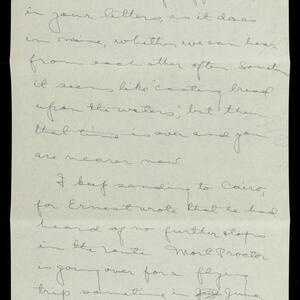 in your letters, as it does
in mine, whether we can hear
from each other often. Somehow
it seems like "casting bread
upon the waters", but then
that time is over and you
are nearer now
I keep sending to Cairo,
for Ernest wrote that he had
heard of no further stops
in the route. Mort Proctor
is going over for a flying
trip sometime in June